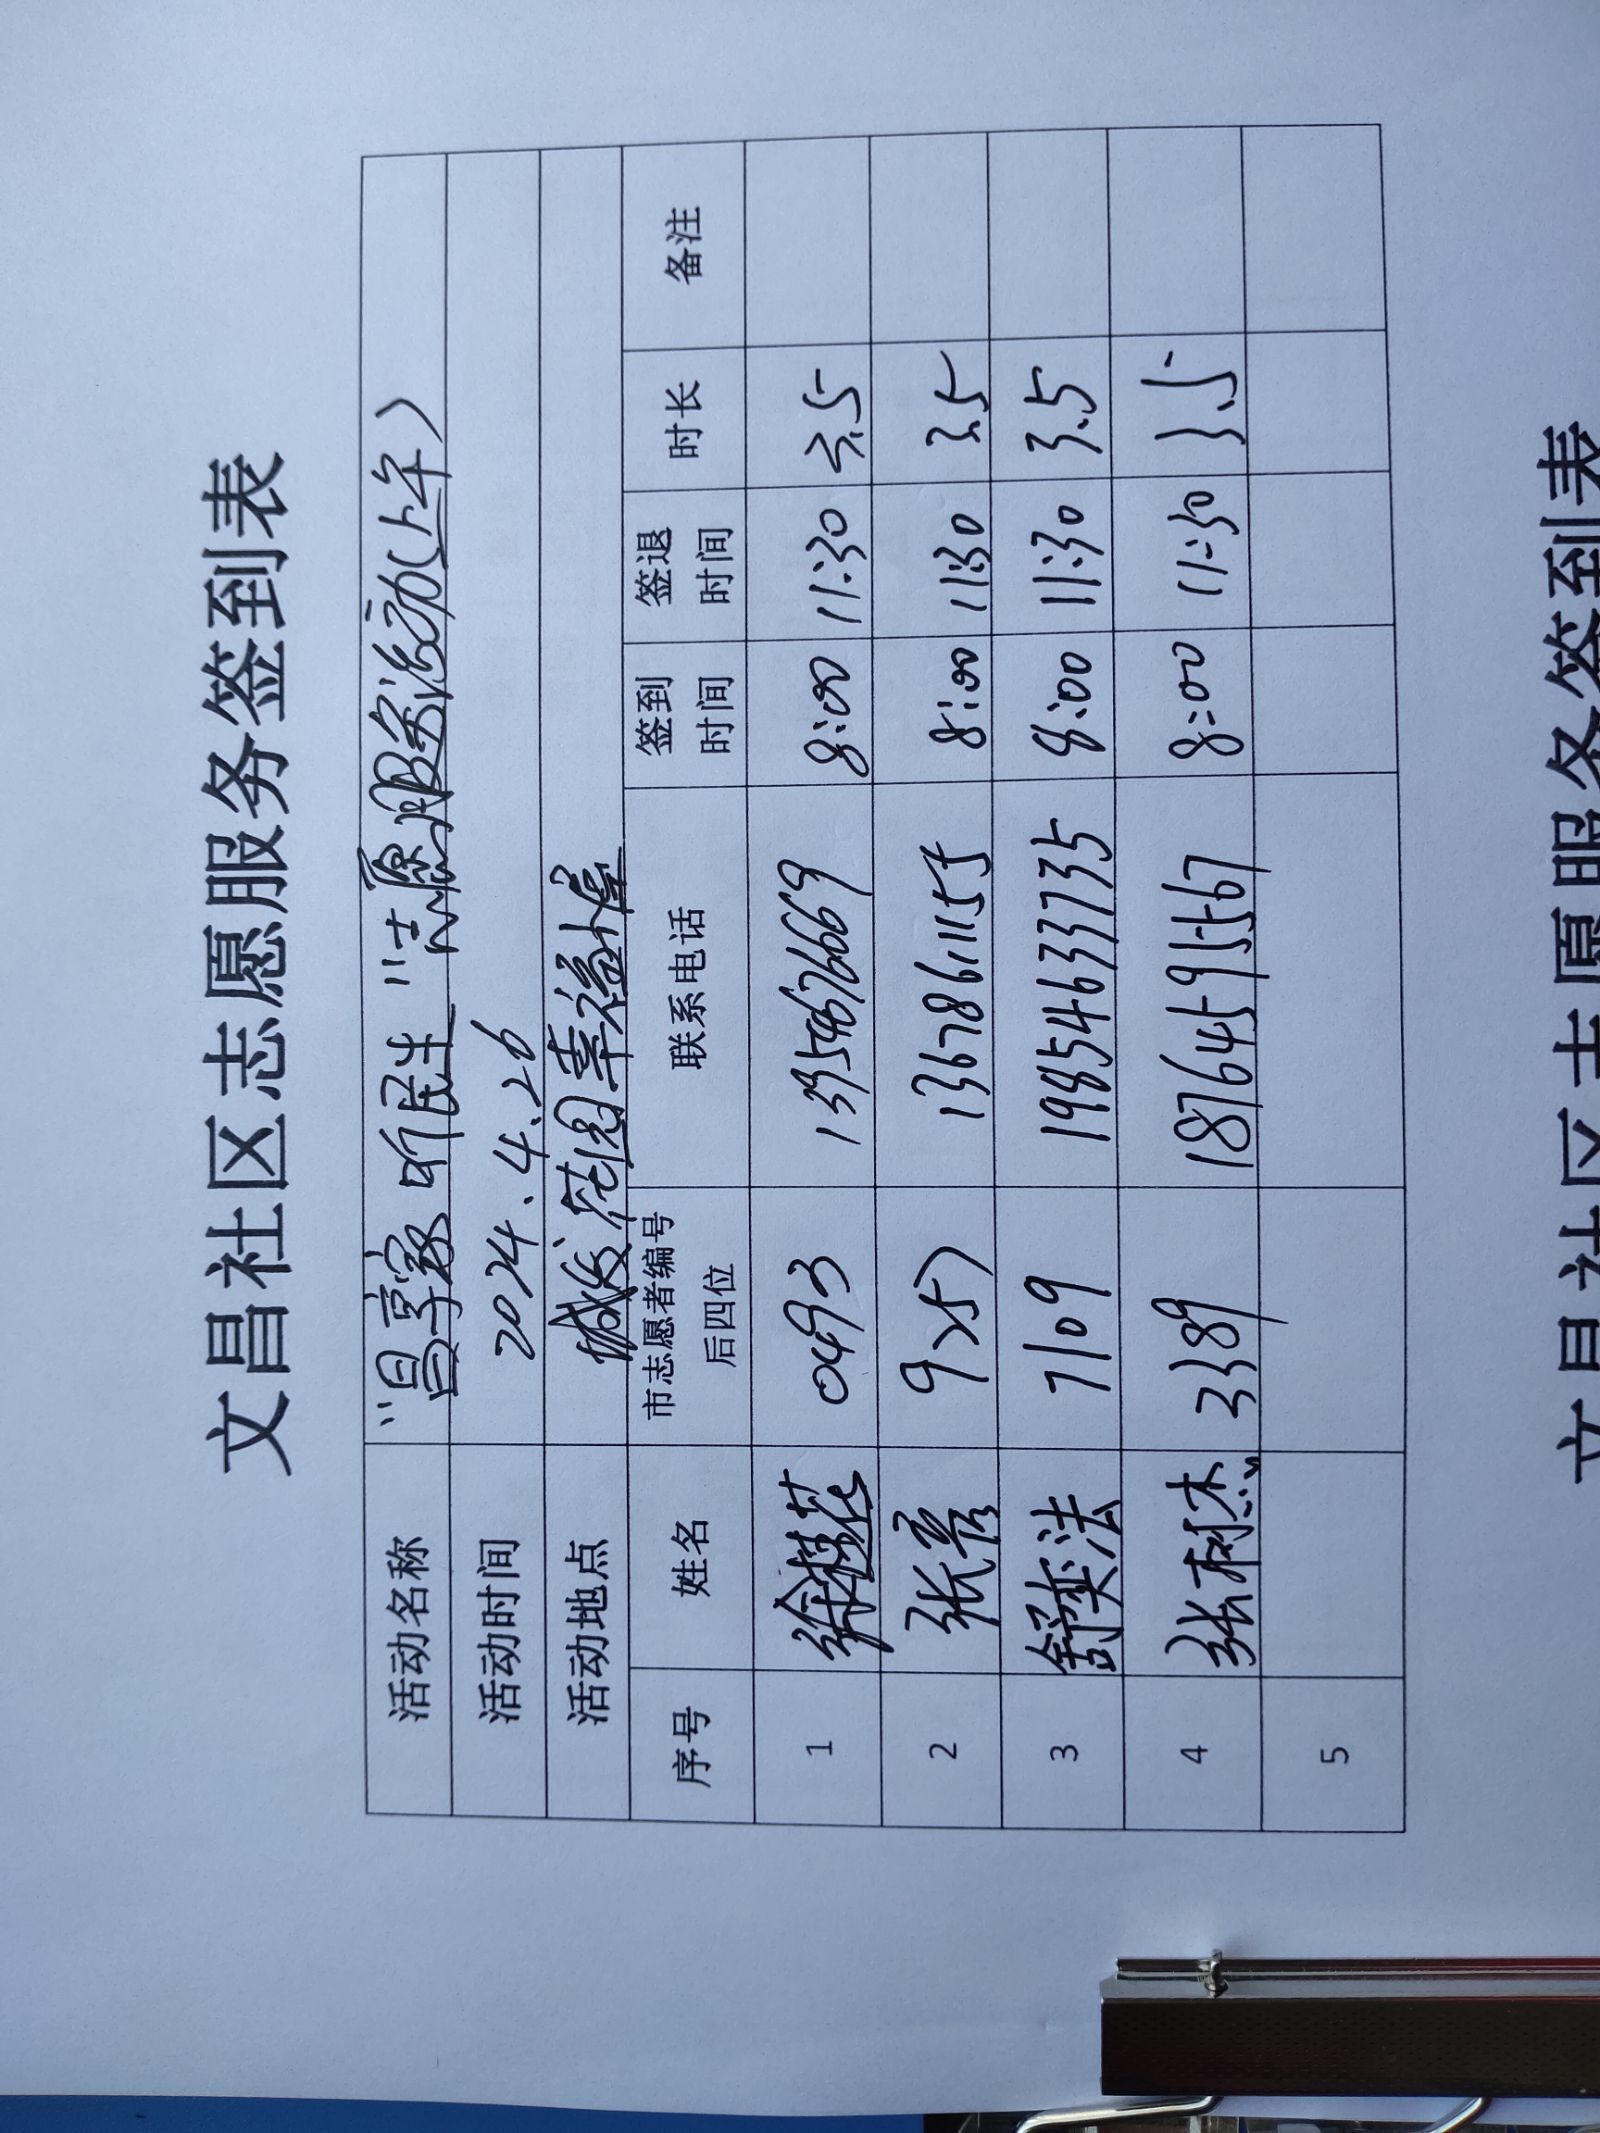 文昌社区志愿服务签到表
活动名称 "昌享家 昕民生"志愿服务活动(上午)
活动时间 2024.4.26
活动地点 城发花园幸福小屋
序号 姓名 市志愿者编号后四位 联系电话 签到时间 签退时间 时长 备注
1 徐桂花 0493 8:00 11:30 3.5
2 张亮 13678611155 8:00 11:30 3.5
3 舒奕法 7109 19854633735 8:00 11:30 3.5
4 张树杰 3389 18764595567 8:00 11:30 3.5
5
文昌社区志愿服务签到表